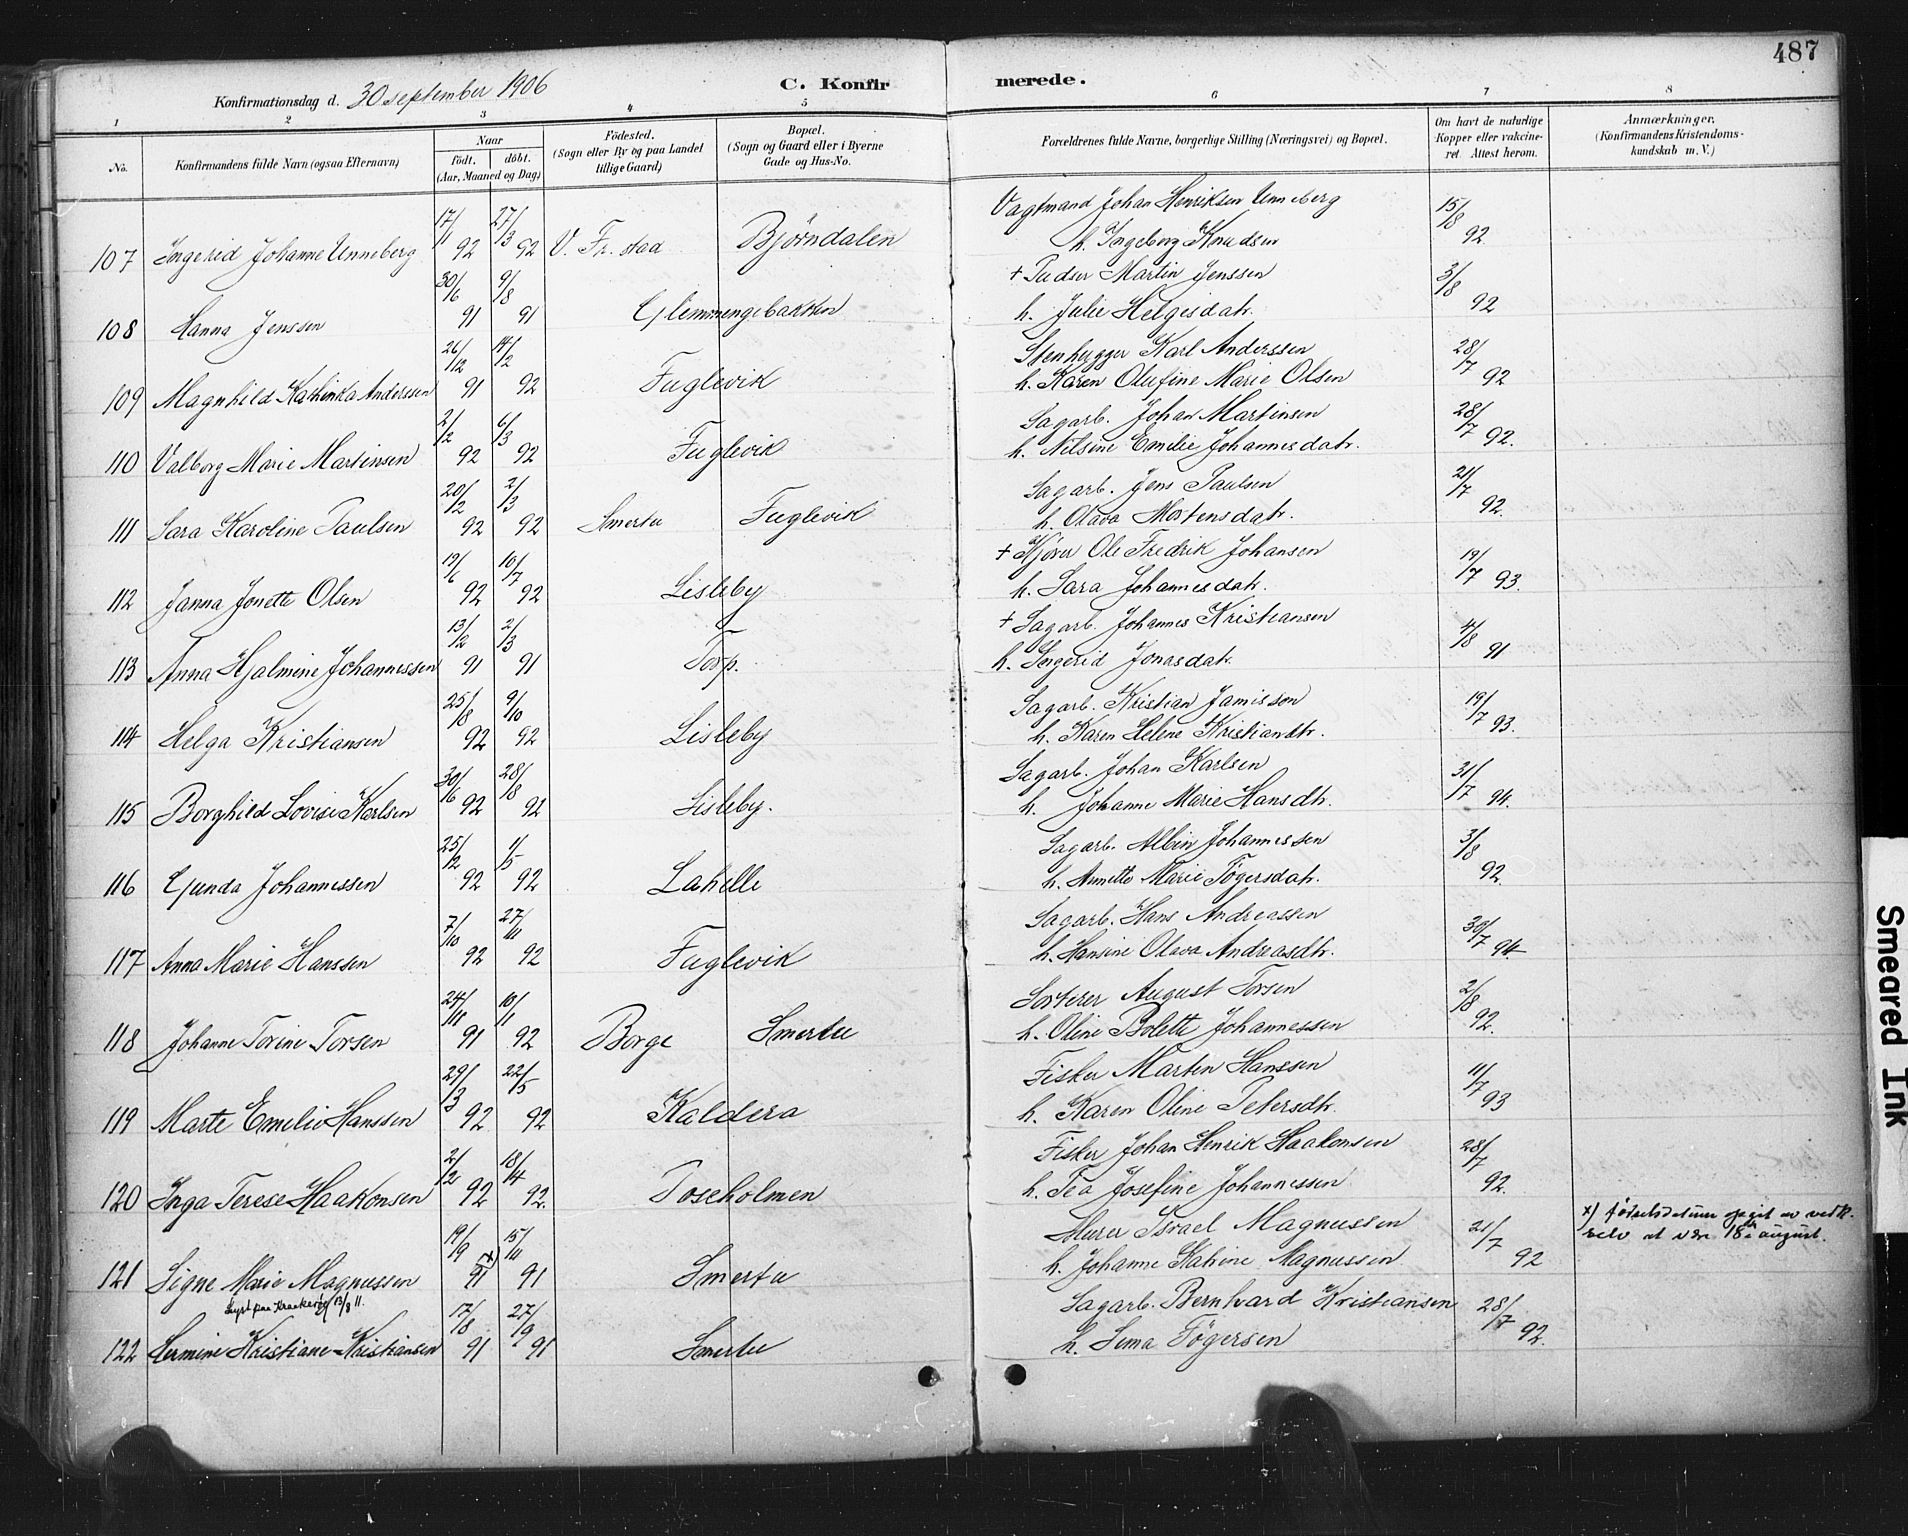 487
Konfirmationsdag d. 30 september 1906
C. Konfirmerede.
1 2 3 4 5 6 7 8
No. Konfirmandens fulde Navn (ogsaa Efternavn) Naar født. døbt. (Aar, Maaned og Dag) Fødested. (Sogn eller By og paa Landet tillige Gaard) Bopæl. (Sogn og Gaard eller i Byerne Gade og Hus-No. Forældrenes fulde Navne, borgerlige Stilling (Næringsvei) og Bopæl. Om havt de naturlige Kopper eller vakcineret. Attest herom. Anmærkninger. (Konfirmandens Kristendomskundskab m. V.)
107 Ingerid Johanne Unneberg 17/11 92 27/3 92 V. Fr. stad Bjørndalen Vagtmand Johan Henriksen Unneberg 15/8 92
h. Ingeborg Knudsen
108 Hanna Jenssen 30/6 91 9/8 91 Glemmengebakken + Pudser Martin Jenssen 3/8 92
h. Julie Helgesdatr.
109 Magnhild Kathinka Anderssen 26/12 91 14/2 92 Fuglevik Stenhugger Karl Anderssen 28/7 92
h. Karen Olufine Marie Olsen
110 Valborg Marie Martinsen 2/2 92 6/3 92 Fuglevik Sagarb. Johan Martinsen 28/7 92.
h. Nilsine Emilie Johannesdatr.
111 Sara Karoline Paulsen 20/2 92 2/3 92 Smertu Fuglevik Sagarb. Jens Paulsen 21/7 92.
h. Olava Mortensdatr.
112 Janna Jonette Olsen 19/6 92 10/7 92 Lisleby + Kjører Ole Fredrik Johansen 19/7 93.
h. Sara Johannesdatr.
113 Anna Hjalmine Johannessen 13/2 91 2/3 91 Torp. + Sagarb. Johannes Kristiansen 4/8 91
h. Ingerid Jonasdatr.
114 Helga Kristiansen 25/8 92 9/10 92 Lisleby Sagarb. Kristian Jamisson 19/7 93.
h. Karen Helene Kristiandtr.
115 Borghild Lovise Karlsen 30/6 92 28/8 92 Lisleby. Sagarb. Johan Karlsen 31/7 94.
h. Johanne Marie Hansdtr.
116 Gunda Johannessen 25/2 92 1/5 92 Lahelle Sagarb. Albin Johannessen 3/8 92.
h. Annette Marie Tøgersdatr.
117 Anna Marie Hanssen 7/10 92 27/11 92 Fuglevik Sagarb. Hans Andreassen 30/7 94.
h. Hansine Olava Andreasdtr.
118 Johanne Torine Torsen 24/11 91 10/1 92 Borge Smertu Sorterer August Torsen 2/8 92.
h. Oline Bolette Johannessen
119 Marte Emelie Hanssen 29/3 92 22/5 92 Kaldera Fisker Martin Hanssen 11/7 93
h. Karen Oline Petersdtr.
120 Inga Terese Haakonsen 2/2 92 18/4 92. Toseholmen Fisker Johan Henrik Haakonsen 28/7 92.
h. Tea Josefine Johannessen
121 Signe Marie Magnussen 19/9 x) 91 15/11 91 Smertu Murer Israel Magnussen 21/7 92 x) fødselsdatum opgit av vedk. selv at være 18de august.
h. Johanne Katrine Magnussen
Lyst paa Kraakerøy 13/8 11.
122 Hermine Kristiane Kristiansen 17/8 91 27/9 91 Smertu Sagarb. Bernhard Kristiansen 28/7 92.
h. Sina Tøgersen
Smeared Ink